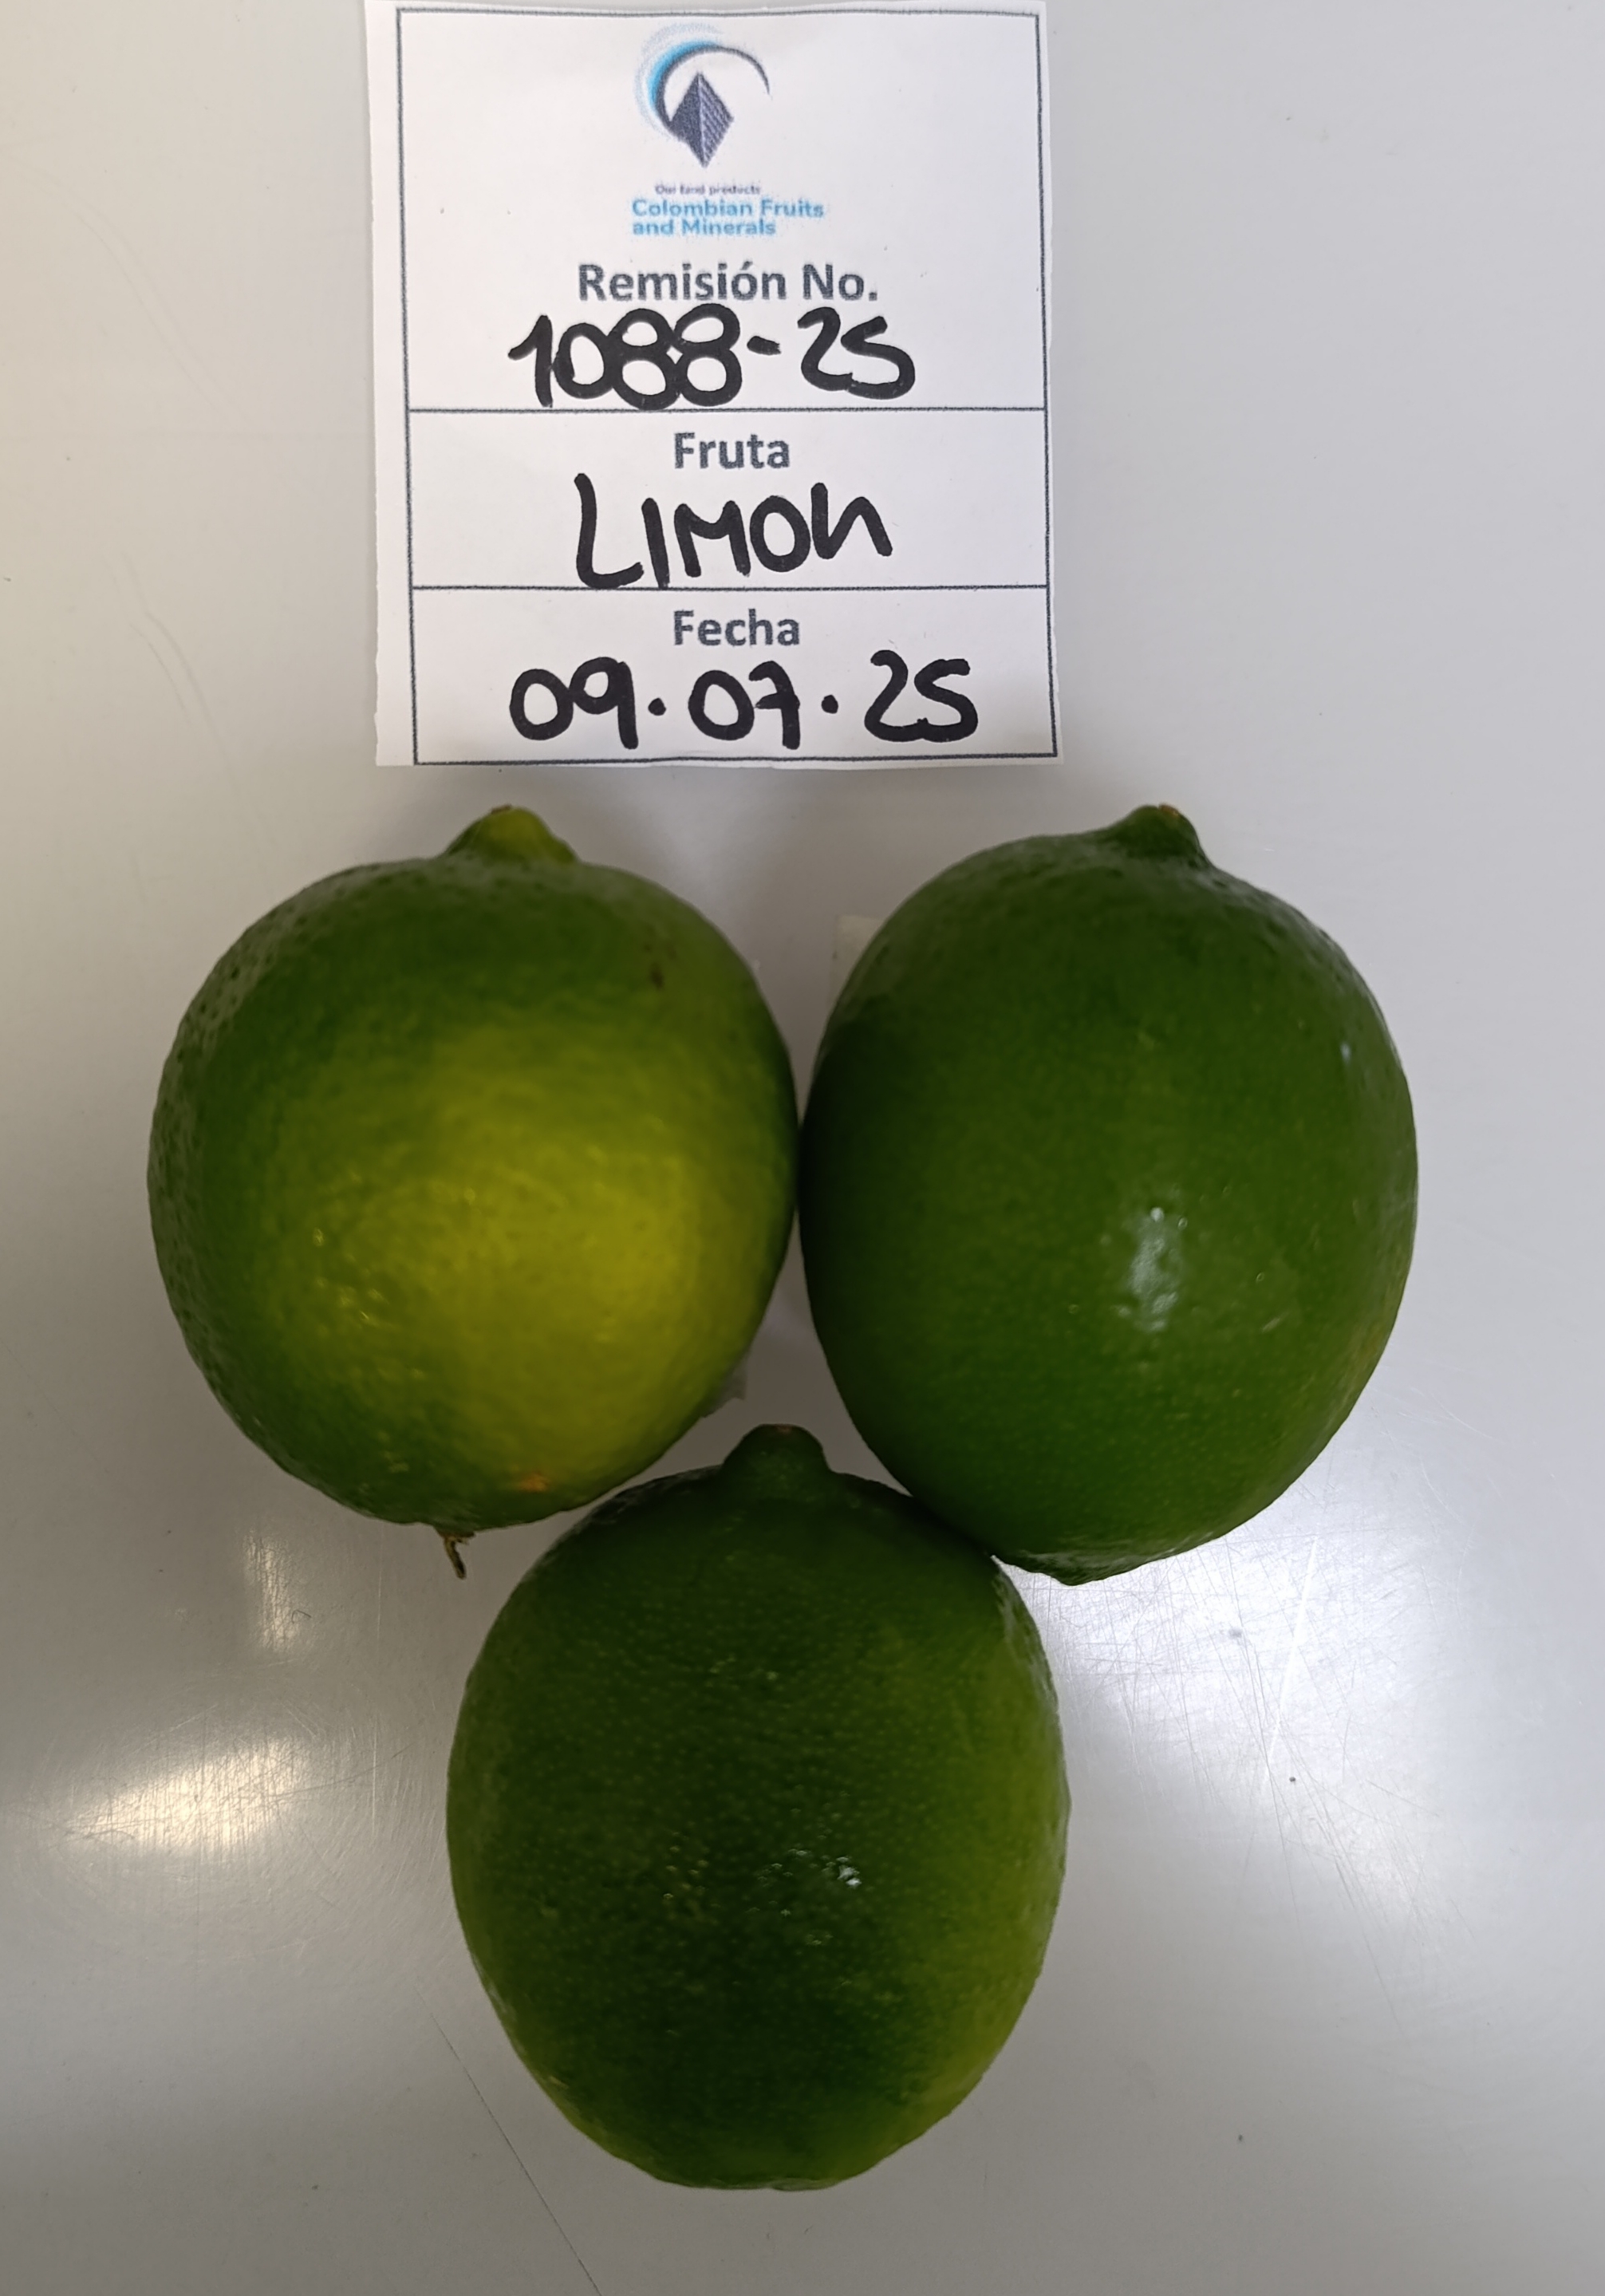 Our land products
Colombian Fruits
and Minerals
Remisión No.
1088-25
Fruta
LIMON
Fecha
09.07.25